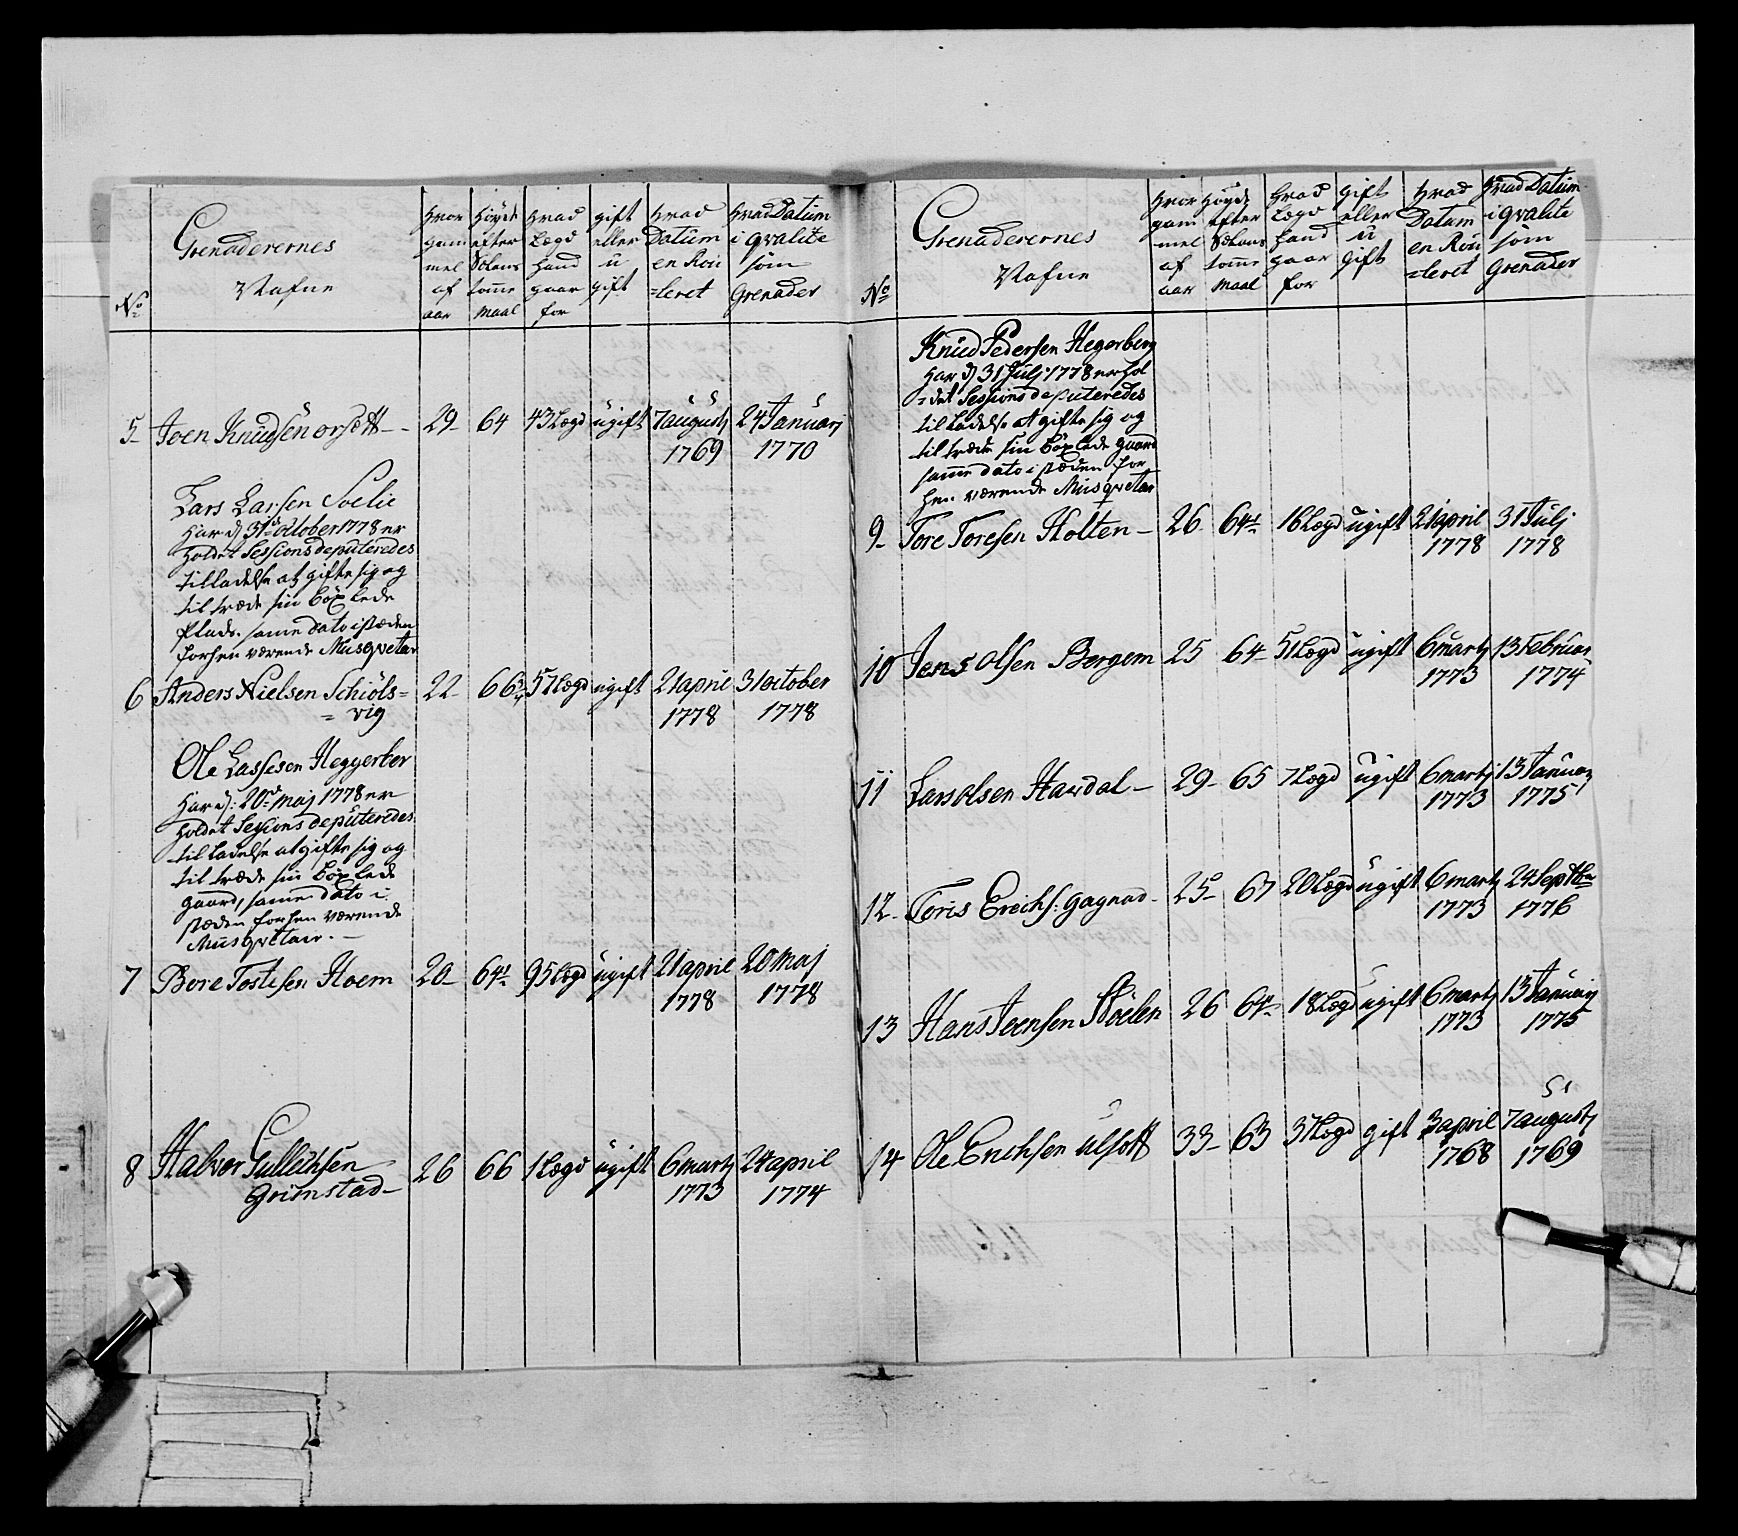 No
Grenaderernes
Nafne
hvor
gam
mel
af
aar
Høyde
efter
Sælans
tomme
Maal
hvad
Lægd
hand
gaar
for
gift
eller
u
gift
hvad
Datum
en Rou
=leret
hvad Datum
i qvalite
som
Grenader
5 Joen Knudsen orset - 29 64 43 Lægd ugift 7 augustj 24 Januarj
1769 1770
Lars Larsen Soelie
Har d 31 October 1778 er
holdet Sessions deputeredes
tilladelse at gifte sig og
til træde sin böxlede
Plads. same Dato i stæden
forhen værende Musqvetair
6 Anders Nielsen Schiöls= 22 66¾ 57 Lægd ugift 21 april 31 October
= vig 1778 1778
Ole Lassesen Heggerber
Har d: 20 Maj 1778 er
holdet Sessions deputeredes
til ladelse at gifte sig og
til træde sin böxlede
gaard, same Dato i
stæden forhen værende
Musqvetair. -
7 Bore Tostesen Hoem 20 64½ 95 Lægd ugift 21 april 20 Maj
1778 1778
8 Halvor Gullichsen 26 66 1 Lægd ugift 6 martj 24 april
Grimstad - 1773 1774
No
Grenaderernes
Nafne
hvor
gam
mel
af
aar
Høyde
efter
Sælans
tomme
Maal
hvad
Lægd
hand
gaar
for
gift
eller
u
gift
hvad
Datum
en Rou
=leret
hvad Datum
i qvalite
som
Grenader
Knud Pedersen Hegerberg
Har d 31 Julj 1778 erhol
=det Sessions deputeredes
til ladelse at gifte sig og
til træde sin böxlede gaard
same dato i stæden for
hen værende Musqvetair
9 Tore Toresen Holten - 26 64½ 16 Lægd ugift 21 april 31 Julj
1778 1778
10 Jens Olsen Bergem 25 64 51 Lægd ugift 6 martj 13 Februar
1773 1774
11 Lars Olsen Hardal - 29 65 7 Lægd ugift 6 martj 13 Januarj
1773 1775
12 Toris Erichs: Gagnad - 25 67 20 Lægd ugift 6 martj 24 Septbr
1773 1776
13 Hans Joensen Stöelen 26 64 18 Lægd ugift 6 martj 13 Januarj
1773 1775
14 Ole Erichsen Ulset 33 63 37 Lægd gift 3 april 7 augustj
1768 1769